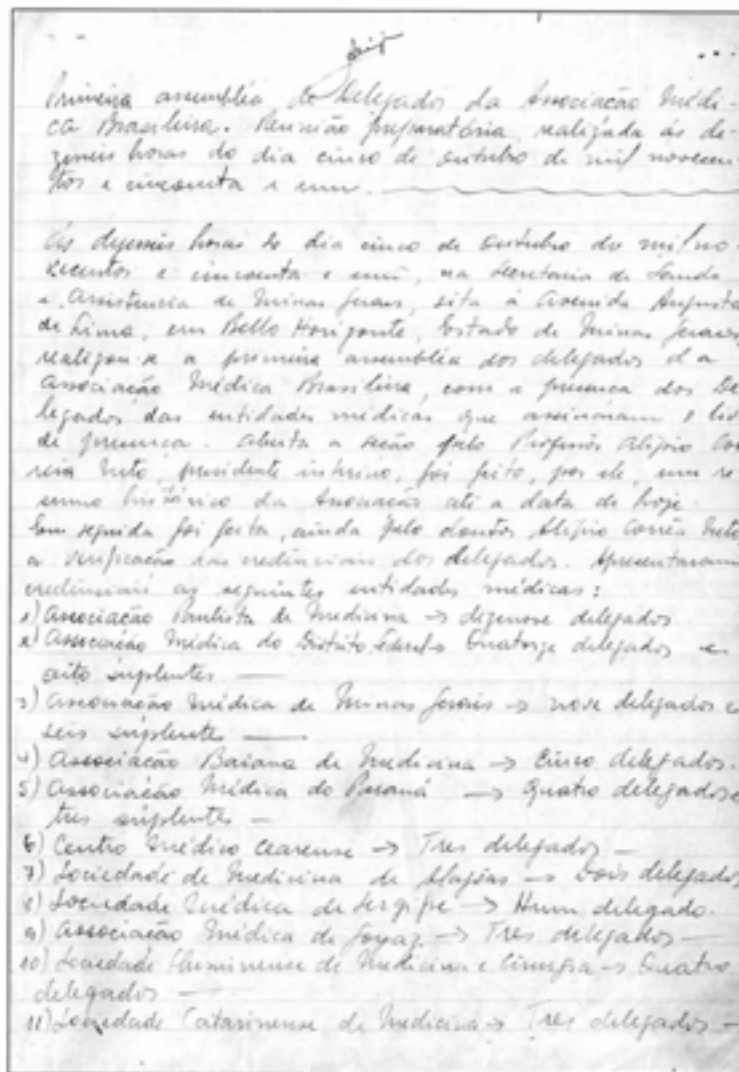 Primeira assemblea de Delegados da Associação Médi-
ca Brasileira. Reunião preparatória, realizada ás de-
zeseis horas do dia cinco de outubro de mil novecen-
tos e cincoenta e um.
Ás dezeseis horas do dia cinco de outubro de mil no-
vecentos e cincoenta e um, na Secretaria de Saude
e Assistencia de Minas Gerais, sita á Avenida Augusto
de Lima, em Bello Horizonte, Estado de Minas Gerais,
realizou-se a primeira assemblea dos delegados da
Associação Médica Brasileira, com a presença dos De
legados das entidades médicas que assinaram o liv
de presença. Aberta a seção pelo Professor Alipio Cor
reia Neto, presidente interino, foi feito, por ele, um re-
sumo histórico da Associação até a data de hoje.
Em seguida foi feita, ainda pelo doutor Alipio Corrêa Neto
a verificação das credenciais dos delegados. Apresentaram
credenciais as seguintes entidades médicas:
1) Associação Paulista de Medicina → dezenove delegados
2) Associação Médica do Distrito Federal → Quatorze delegados e
oito suplentes —
3) Associação Médica de Minas Gerais → nove delegados e
seis suplentes —
4) Associação Baiana de Medicina → Cinco delegados.
5) Associação Médica do Paraná → Quatro delegados e
tres suplentes —
6) Centro Médico Cearense → Tres delegados —
7) Sociedade de Medicina de Alagôas → Dois delegados
8) Sociedade Médica de Sergipe → Hum delegado.
9) Associação Médica de Goyaz → Tres delegados —
10) Sociedade Fluminense de Medicina e Cirurgia → Quatro
delegados —
11) Sociedade Catarinense de Medicina → Tres delegados —